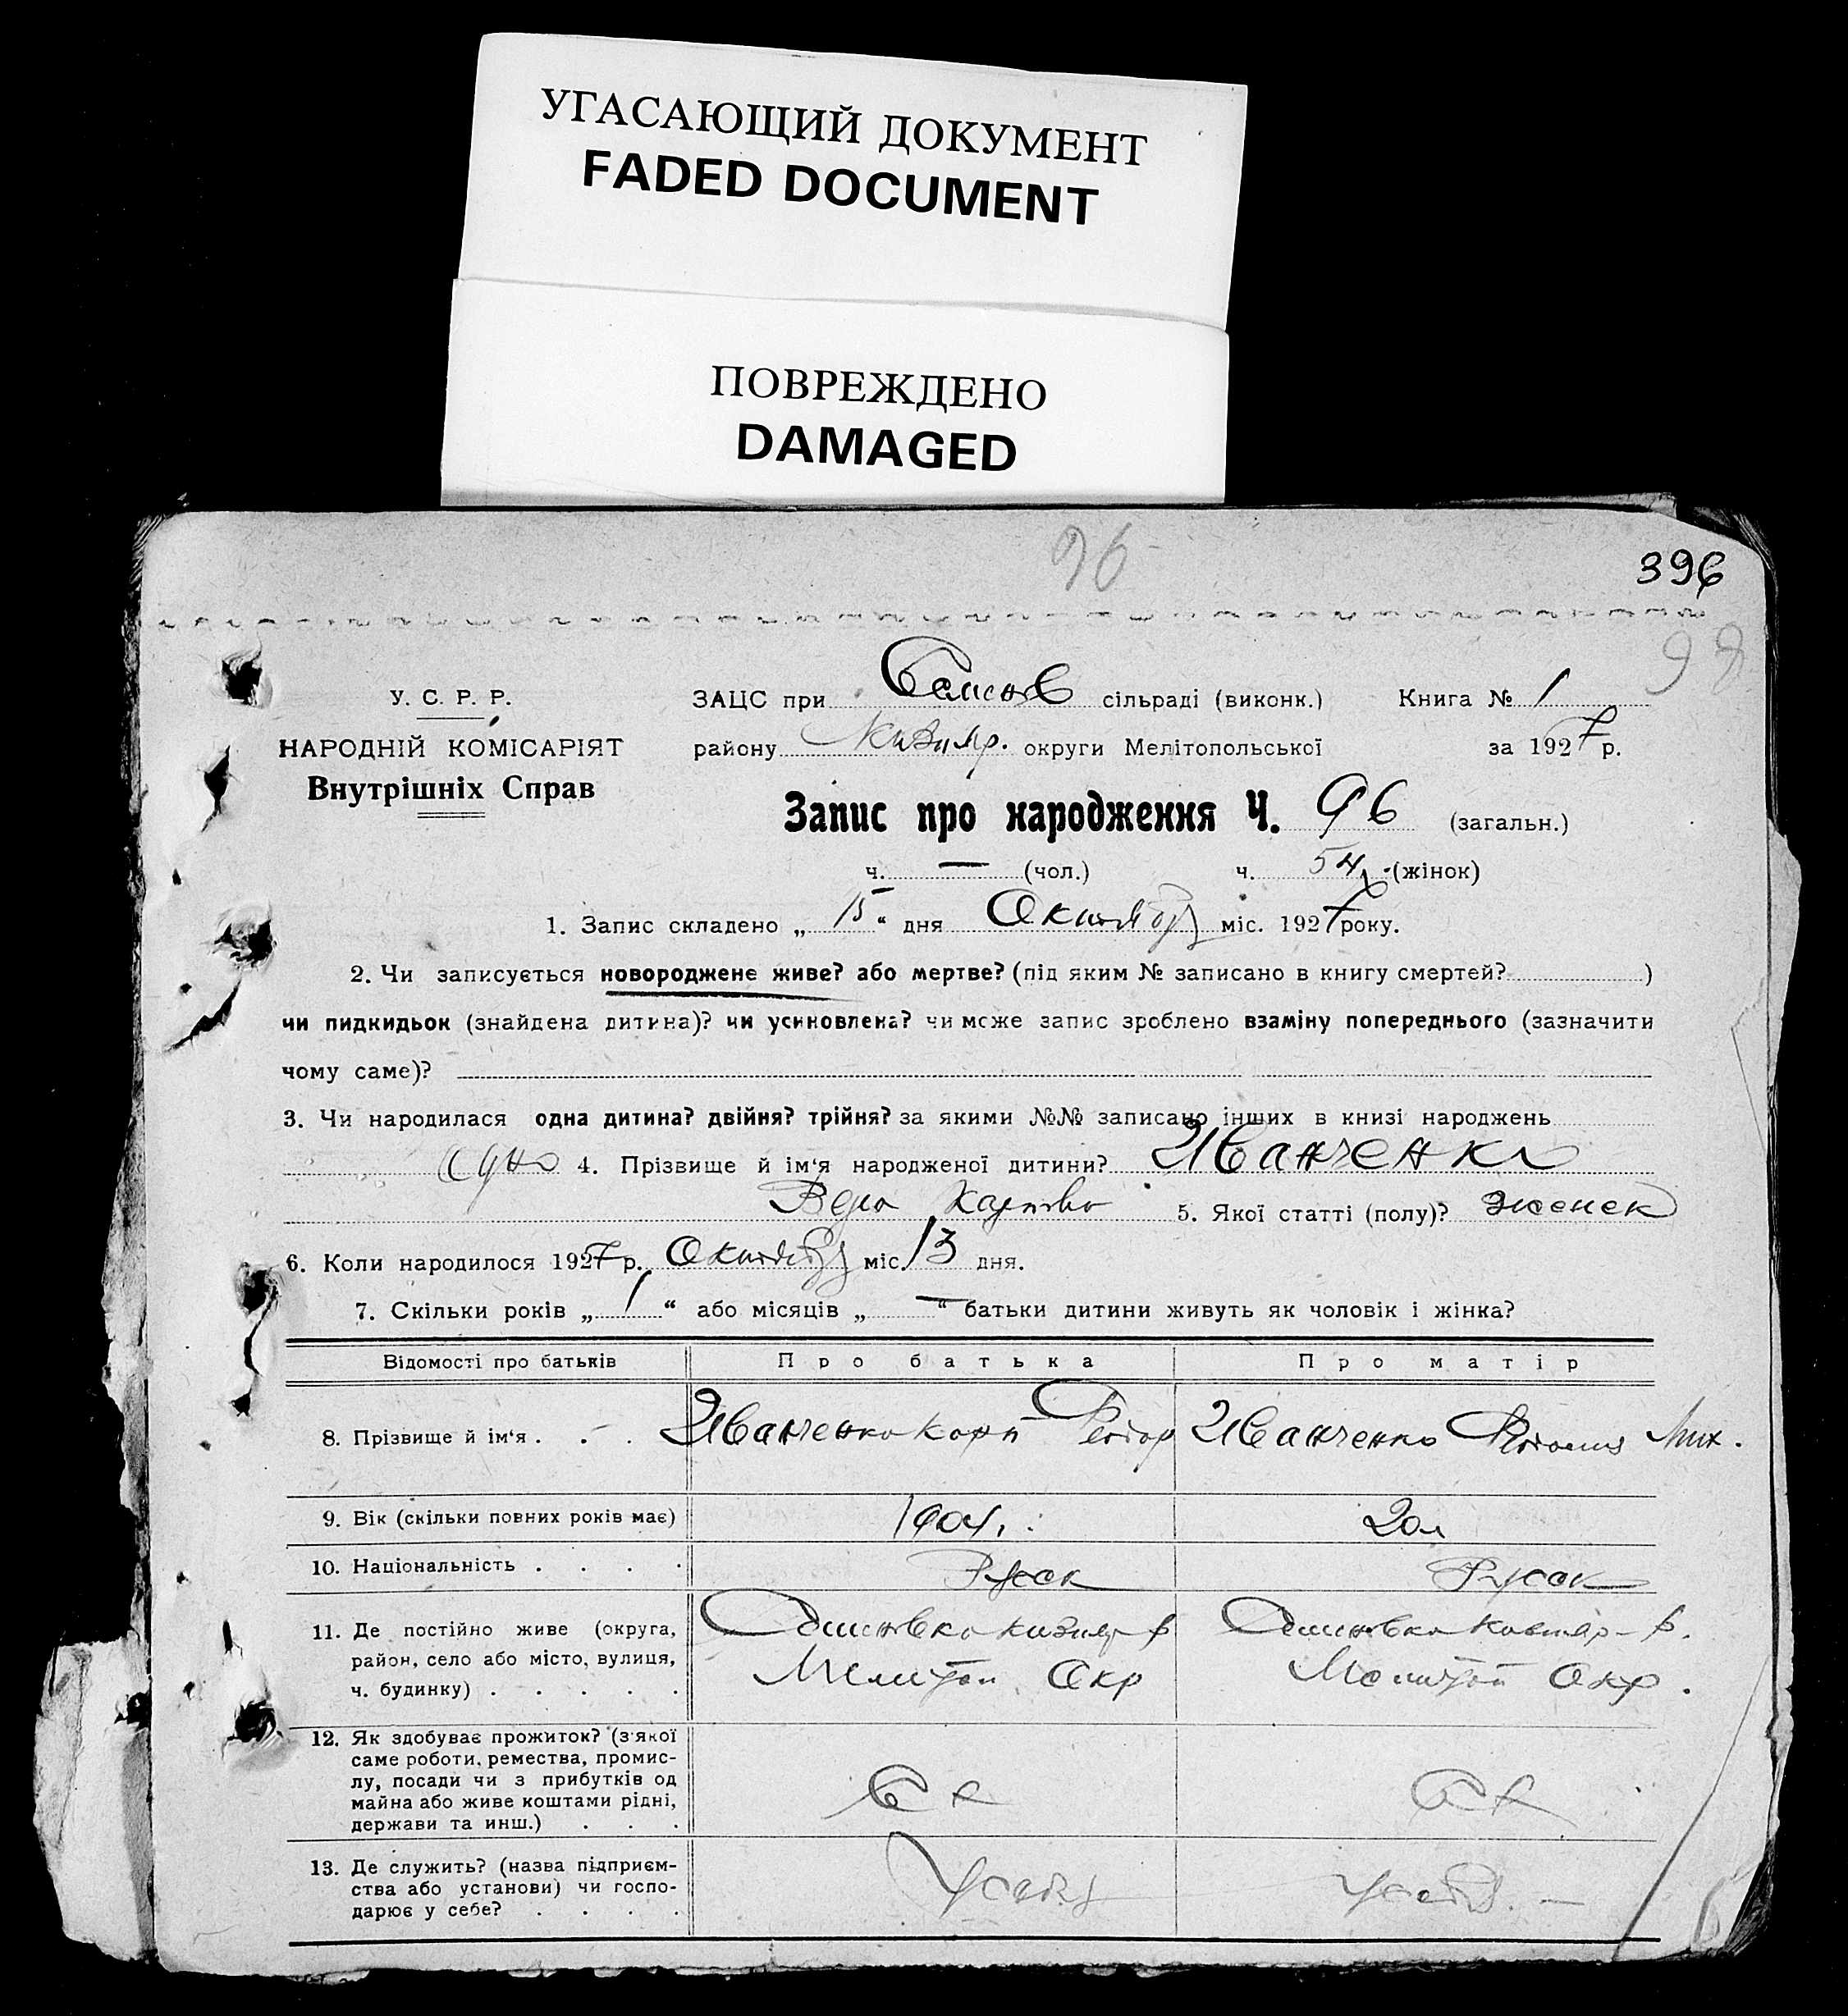 УГАСАЮЩИЙ ДОКУМЕНТ
FADED DOCUMENT
ПОВРЕЖДЕНО
DAMAGED
96
396
98
У. С. Р. Р.
НАРОДНІЙ КОМІСАРІЯТ
Внутрішніх Справ
ЗАЦС при сільраді (виконк.) Книга № 1
району округи Мелітопольської за 1927 р.
Запис про народження Ч. 96 (загальн.)
ч. — (чол.) ч. 54 (жінок)
1. Запис складено „ 15 “ дня Октября міс. 1927 року.
2. Чи записується новороджене живе? або мертве? (під яким № записано в книгу смертей? )
чи пидкидьок (знайдена дитина)? чи усиновлена? чи може запис зроблено взаміну попереднього (зазначити
чому саме)?
3. Чи народилася одна дитина? двійня? трійня? за якими №№ записано інших в книзі народжень
одно 4. Прізвище й ім‘я народженої дитини? Иванченко
Вера Карповна 5. Якої статті (полу)? женск
6. Коли народилося 1927 р. Октября міс. 13 дня.
7. Скільки років „ 1 “ або місяців „ — “ батьки дитини живуть як чоловік і жінка?
Відомості про батьків Про батька Про матір
8. Прізвище й ім‘я . . . Иванченко Карп Федор Иванченко Мих.
9. Вік (скільки повних років має) 1904. 20л
10. Національність . . . . Русск Русск
11. Де постійно живе (округа,
район, село або місто, вулиця,
ч. будинку) . . . . .
Мелитоп Окр Мелитоп Окр.
12. Як здобуває прожиток? (з‘якої
саме роботи, ремества, промис-
лу, посади чи з прибутків од
майна або живе коштами рідні,
держави та инш.) . . .
13. Де служить? (назва підприєм-
ства або установи) чи госпо-
дарює у себе? . . . .
у себя у себя. —